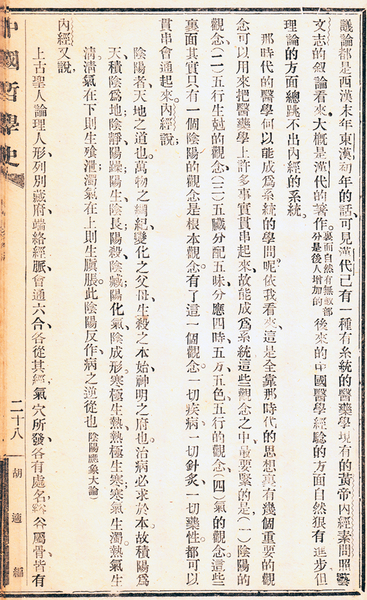 議論都是西漢末年東漢初年的話、可見漢代已有一種有系統的醫藥學、現有的黃帝內經素問照藝
文志的叙論看來、大概是漢代的著作、裏面自然有無數部分是後人增加的後來的中國醫學經驗的方面自然狠有進步但
理論的方面總跳不出內經的系統。
那時代的醫學何以能成爲系統的學問呢、依我看來、這是全靠那時代的思想眞有幾個重要的觀
念可以用來把醫藥學上許多事實貫串起來、故能成爲系統、這些觀念之中最要緊的是(一)陰陽的
觀念(二)五行生尅的觀念(三)五臟分配五味分應四時、五方、五色、五行的觀念(四)氣的觀念、這些
裏面其實只有一個陰陽的觀念是根本觀念、有了這一個觀念、一切疾病、一切針灸、一切藥性都可以
貫串會通起來、內經說
陰陽者、天地之道也。萬物之綱紀、變化之父母、生殺之本始、神明之府也。治病必求於本、故積陽爲
天、積陰爲地、陰靜陽躁、陽生陰長、陽殺陰藏、陽化氣、陰成形、寒極生熱、熱極生寒、寒氣生濁、熱氣生
淸、淸氣在下則生飧泄、濁氣在上則生䐜脹。此陰陽反作、病之逆從也(陰陽應象大論)
內經又說
上古聖人論理人形、列別藏府、端絡經脈、會通六合、各從其經、氣穴所發、各有處名、谿谷屬骨、皆有
中國哲學史
二十八
胡適編